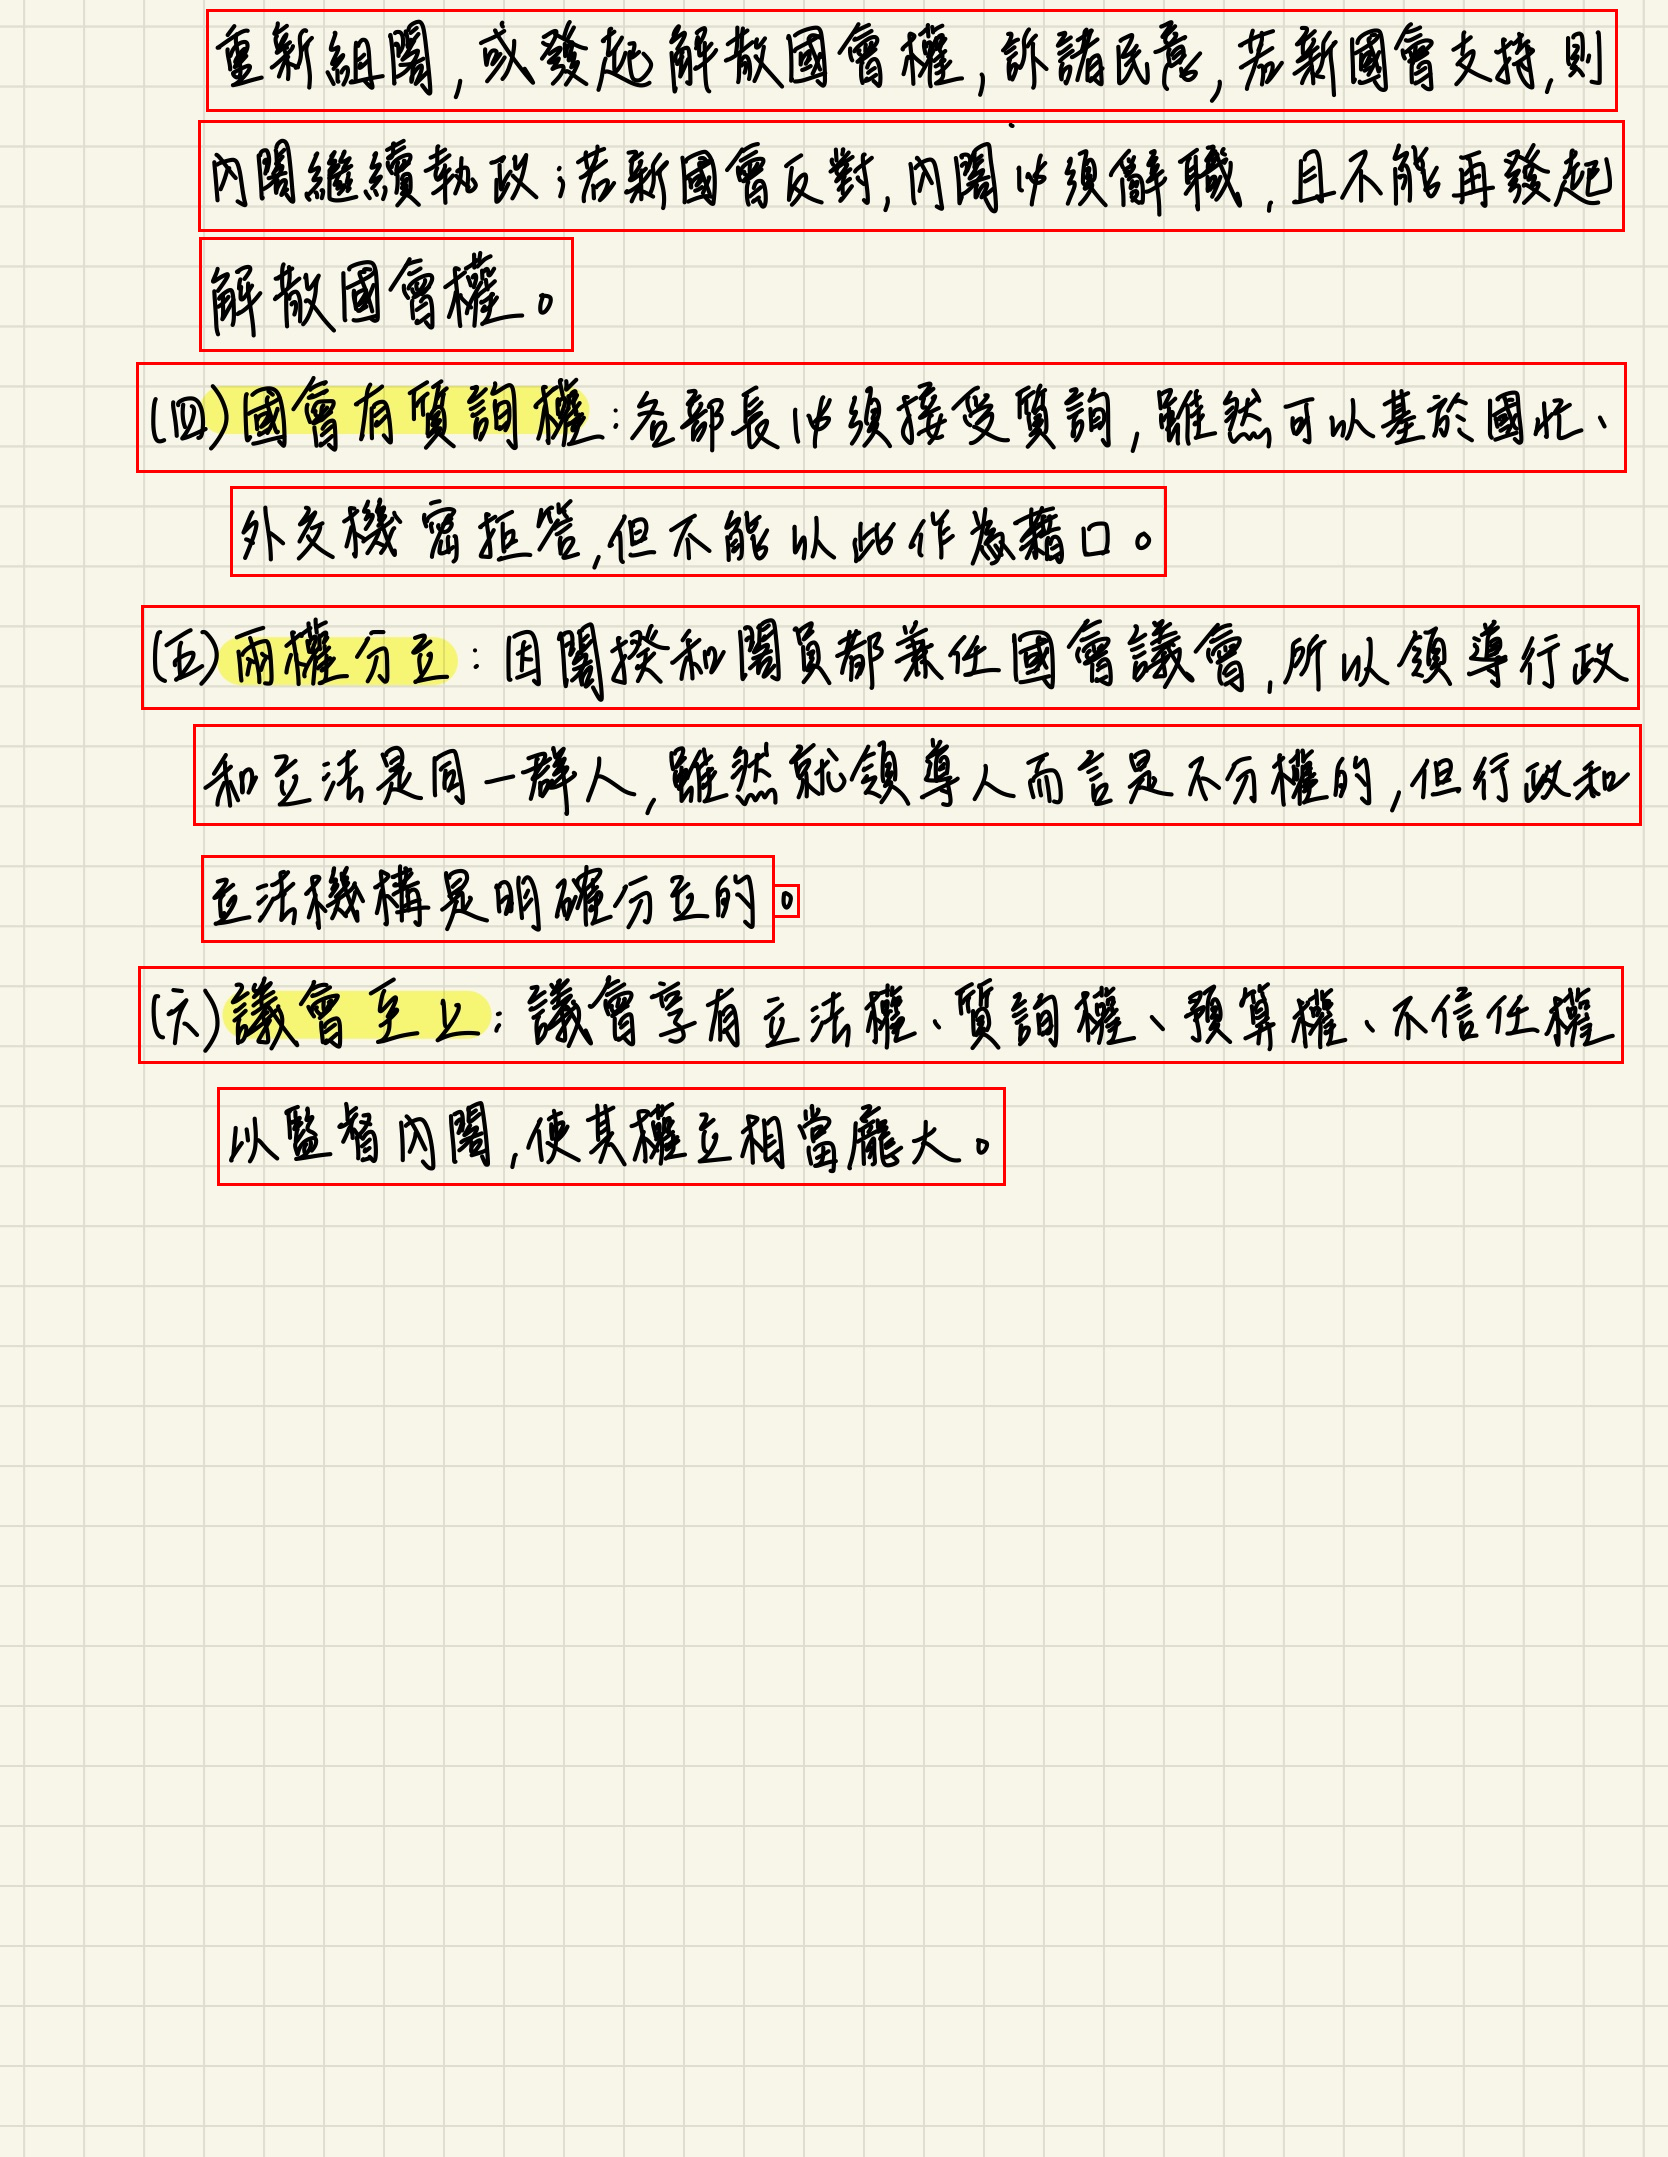 重新組閣,或發起解散國會權,訴諸民意,若新國會支持,則
內閣繼續執政;若新國會反對,內閣必須辭職,且不能再發起
解散國會權。
(四)國會有質詢權:各部長必須接受質詢,雖然可以基於國忙、
外交機密拒答,但不能以此作為藉口。
(五)兩權分立:因閣揆和閣員都兼任國會議會,所以領導行政
和立法是同一群人,雖然就領導人而言是不分權的,但行政和
立法機構是明確分立的。
(六)議會至上:議會享有立法權、質詢權、預算權、不信任權
以監督內閣,使其權立相當龐大。